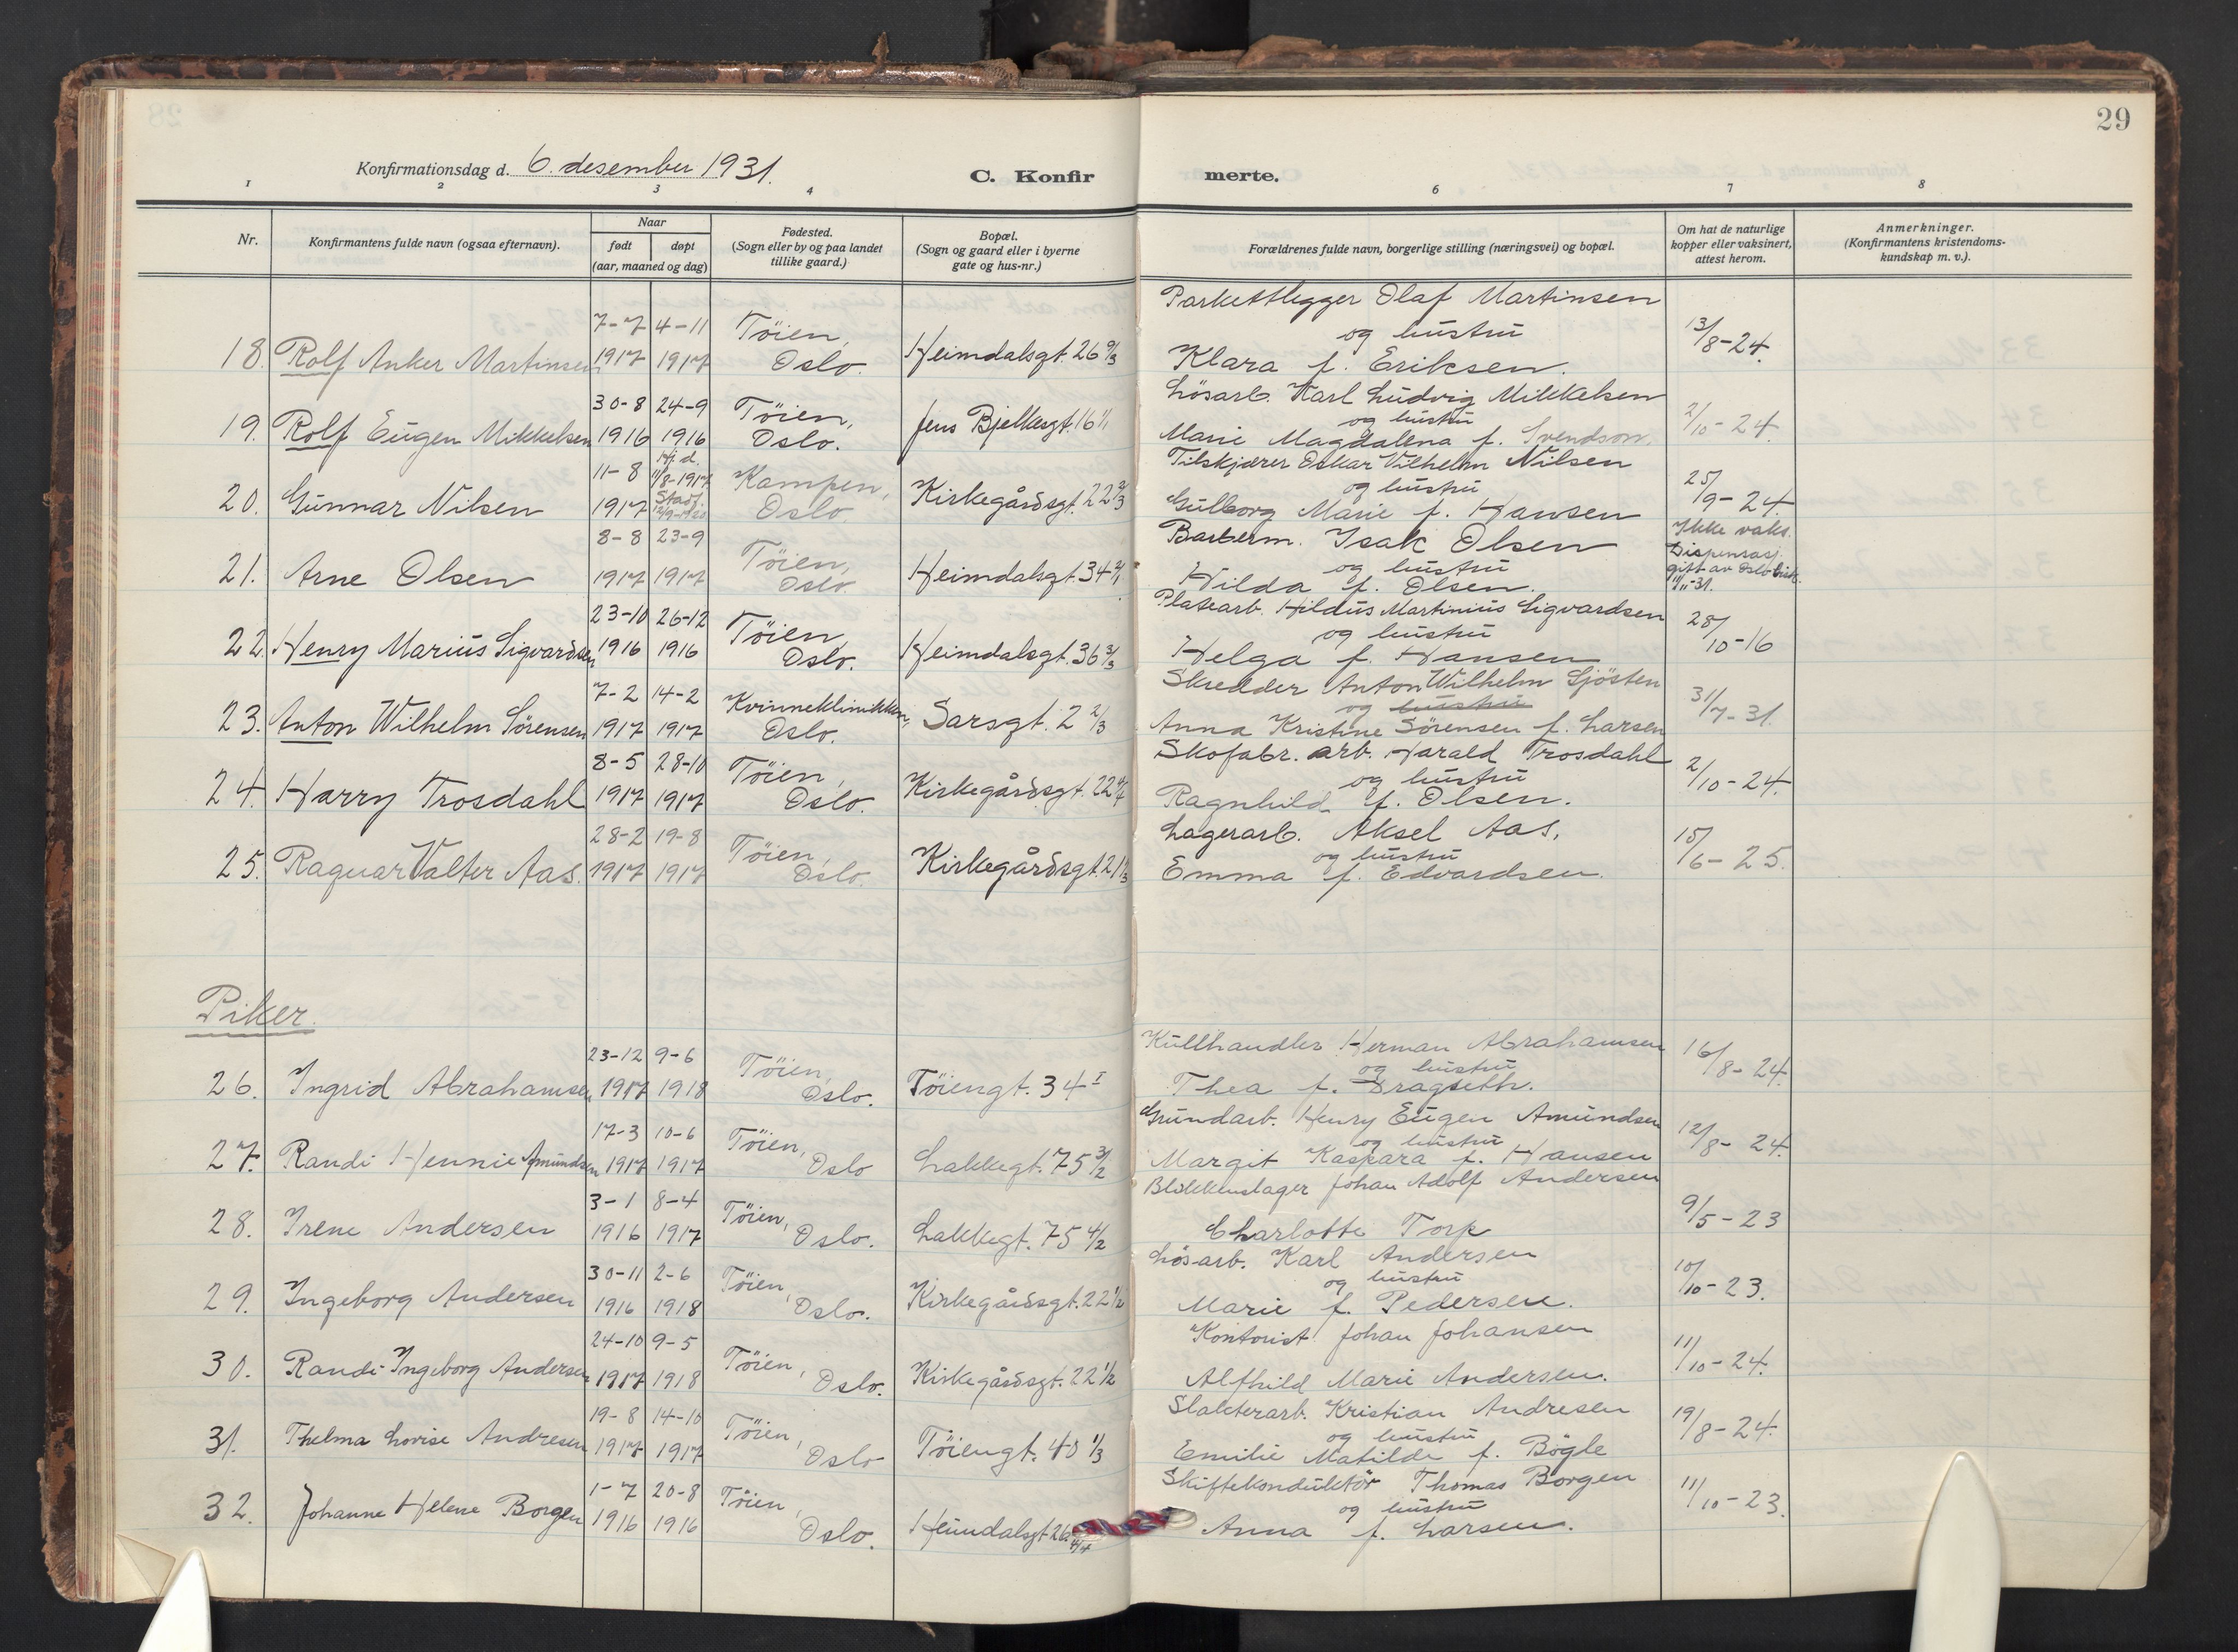 29
Konfirmationsdag d. 6. desember 1931.
C. Konfirmerte.
1 2 3 4 6 7 8
Nr.
Konfirmantens fulde navn (ogsaa efternavn).
Naar
født
døpt
(aar, maaned og dag)
Fødested.
(Sogn eller by og paa landet
tillike gaard.)
Bopæl.
(Sogn og gaard eller i byerne
gate og hus-nr.)
Forældrenes fulde navn, borgerlige stilling (næringsvei) og bopæl.
Om hat de naturlige
kopper eller vaksinert,
attest herom.
Anmerkninger.
(Konfirmantens kristendoms-
kundskap m. v.).
Parkettlegger Olaf Martinsen
7-7 4-11 Töien, og hustru 13/8-24.
18. Rolf Anker Martinsen 1917 1917 Oslo. Heimdalsgt. 26 Klara f. Eriksen.
30-8 24-9 Töien, Lösarb. Karl Ludvig Mikkelsen
og hustru 2/10-24.
19. Rolf Eugen Mikkelsen 1916 1916 Oslo. Jens Bjelkesgt. 16 Marie Magdalena f. Svendson.
11-8 11/8-1917 Kampen, Tilskjærer Oskar Vilhelm Nilsen
og hustru 25/9-24.
20. Gunnar Nilsen 1917 Oslo. Kirkegårdsgt. 22 2/3 Gulborg Marie f. Hansen
8-8 23-9 Töien, Barberm. Isak Olsen Ikke vaks.
og hustru Dispensasj.
21. Arne Olsen 1917 1917 Oslo. Heimdalsgt. 34 Hilda f. Olsen. gitt av Oslo
23-10 26-12 Töien, Platearb. Hildus Martinius Sigvardsen
og hustru 28/10-16
22. Henry Marius Sigvardsen 1916 1916 Oslo. Heimdalsgt. 36 3/3 Helga f. Hansen
7-2 14-2 Kvinneklinikken, Skredder Anton Wilhelm Sjösten
og hustru 31/7-31.
23. Anton Wilhelm Sörensen 1917 1917 Oslo. Sarsgt. 2 2/3 Anna Kristine Sörensen f. Larsen
8-5 28-10 Töien, Skofabr. arb. Harald Trosdahl
og hustru 2/10-24.
24. Harry Trosdahl 1917 1917 Oslo. Kirkegårdsgt. 22 Ragnhild f. Olsen.
28-2 19-8 Töien, Lagerarb. Aksel Aas,
og hustru 15/6-25.
25. Ragnar Valter Aas. 1917 1917 Oslo. Kirkegårdsgt. 21 Emma f. Edvardsen.
Piker.
23-12 9-6 Töien, Kullhandler Herman Abrahamsen
og hustru 16/8-24.
26. Ingrid Abrahamsen 1917 1918 Oslo. Töiengt. 34 I Thea f. Dragseth.
17-3 10-6 Töien, Grundarb. Henry Eugen Amundsen
og hustru 12/8-24.
27. Randi Hennie Amundsen 1917 1917 Oslo Lakkegt. 75 3/2 Margit Kaspara f. Hansen
3-1 8-4 Töien, Blikkenslager Johan Adolf Andersen
28. Irene Andersen 1916 1917 Oslo. Lakkegt. 75 4/2 Charlotte Torp 9/5-23
30-11 2-6 Töien, Lösarb. Karl Andersen
og hustru 10/10-23.
29. Ingeborg Andersen 1916 1918 Oslo. Kirkegårdsgt. 22 1/2 Marie f. Pedersen.
24-10 9-5 Töien, Kontorist Johan Johansen
30. Randi Ingeborg Andersen 1917 1918 Oslo. Kirkegårdsgt. 22 1/2 Alfhild Marie Andersen. 11/10-24.
19-8 14-10 Töien, Slakterarb. Kristian Andresen
og hustru 19/8-24.
31. Thelma Lovise Andresen 1917 1917 Oslo Töiengt. 40 1/3 Emilie Matilde f. Bögle
1-7 20-8 Töien, Skiftekonduktör Thomas Borgen
og hustru 11/10-23.
32. Johanne Helene Borgen 1916 1916 Oslo. Heimdalsgt. 26 4/4 Anna f. Larsen.